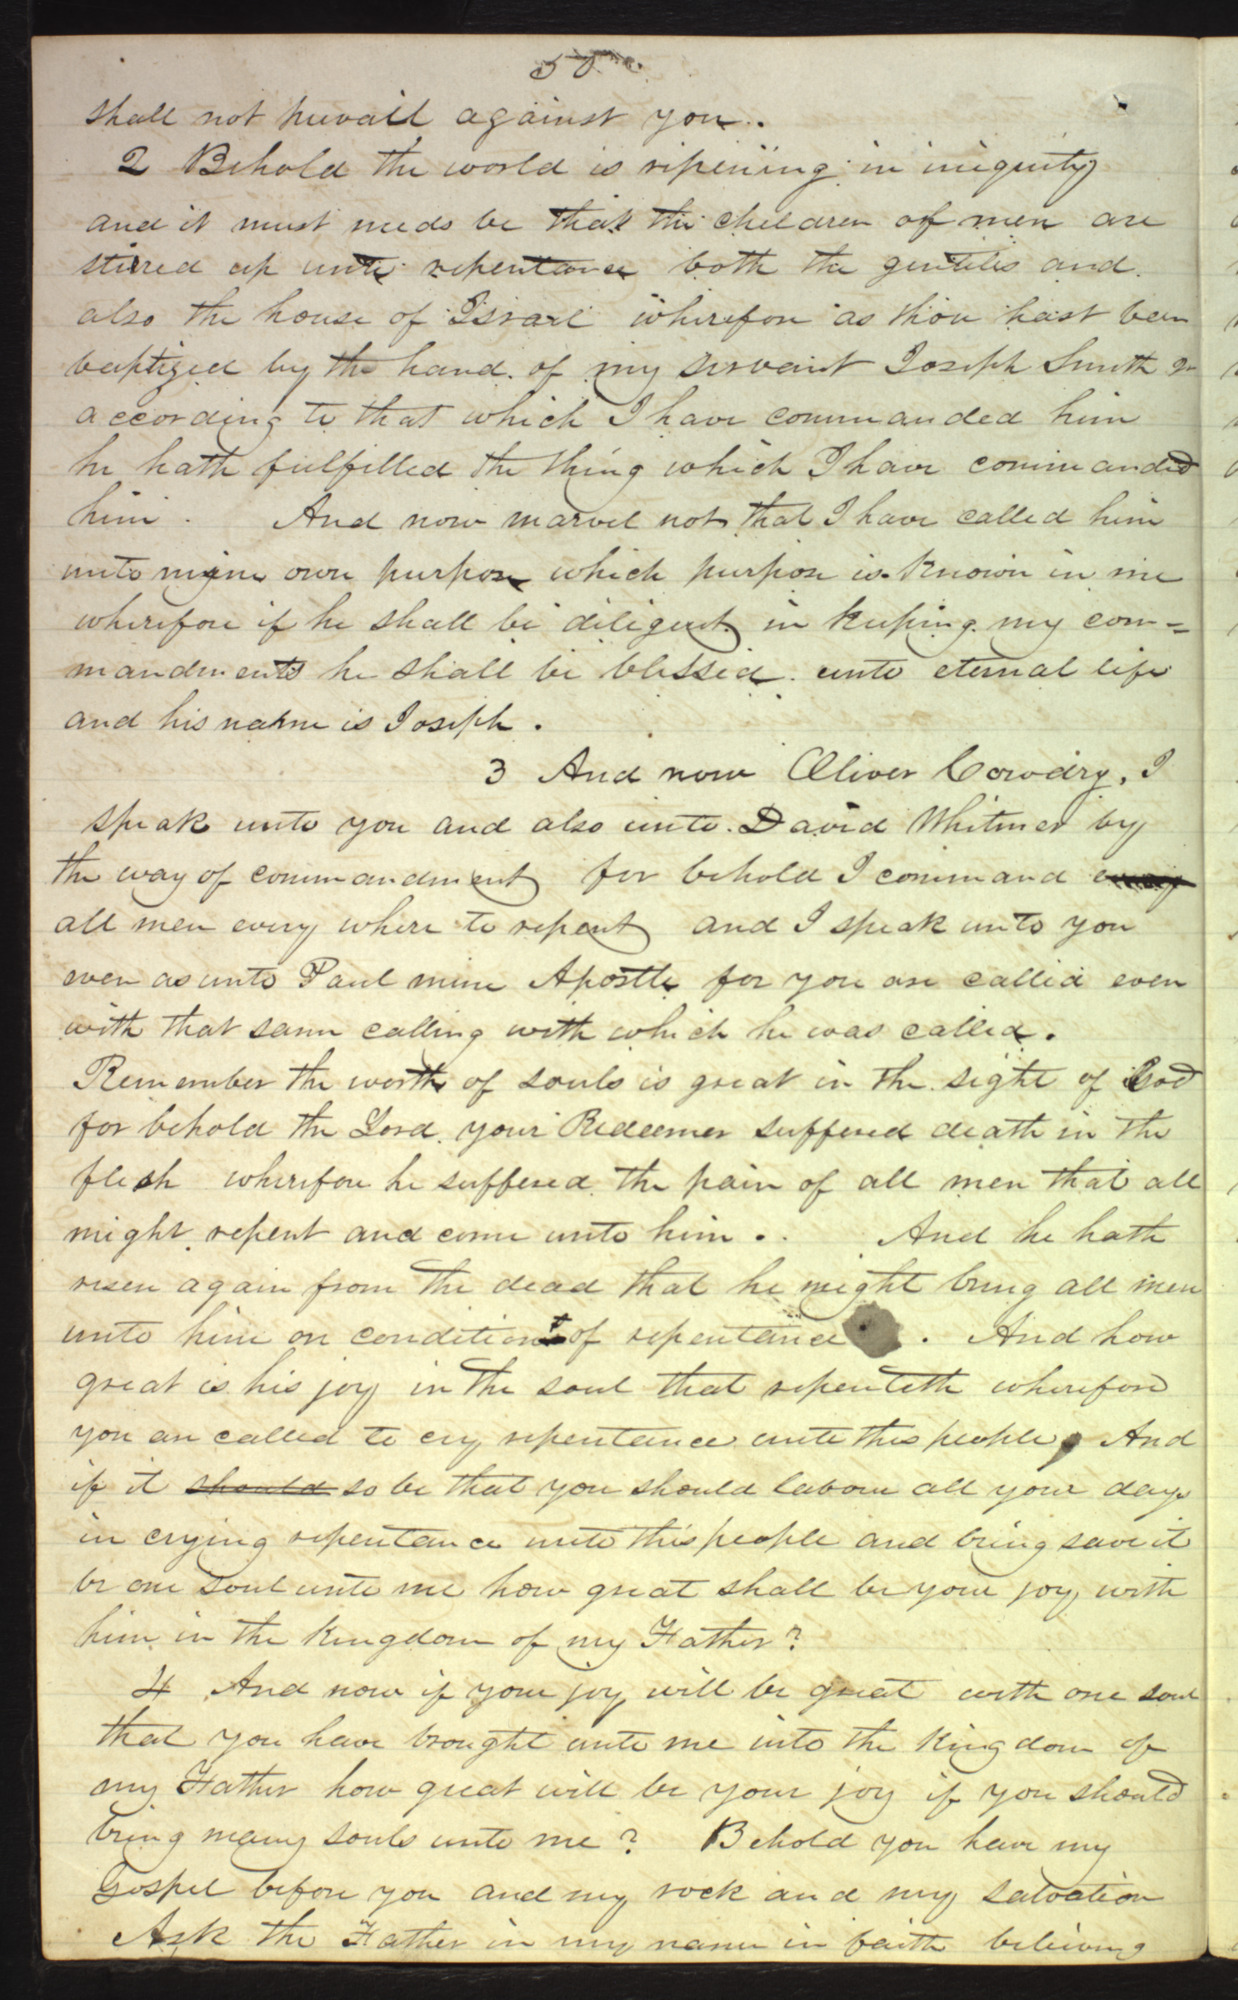 shall not prevail against you.
2 Behold the world is ripening in iniquity
and it must needs be that the children of men are
stirred up unto repentance both the gentiles and
also the house of Israel wherefore as thou hast been
baptized by the hand of my servant Joseph Smith Jr
according to that which I have commanded him
he hath fulfilled the thing which I have commanded
him. And now marvel not that I have called him
unto mine own purpose which purpose is known in me
wherefore if he shall be diligent in keeping my com=
mandments he shall be blessed unto eternal life
and his name is Joseph.
3 And now Oliver Cowdry, I
speak unto you and also unto David Whitmer by
the way of commandment for behold I command every
all men every where to repent and I speak unto you
even as unto Paul mine Apostle for you are called even
with that same calling with which he was called.
Remember the worth of souls is great in the sight of God
for behold the Lord your Redeemer suffered death in the
flesh wherefore he suffered the pain of all men that all
might repent and come unto him. And he hath
risen again from the dead that he might bring all men
unto him on conditions of repentance. And how
great is his joy in the soul that repenteth wherefore
you are called to cry repentance unto this people, And
if it should so be that you should labour all your days
in crying repentance unto this people and bring save it
be one soul unto me how great shall be your joy with
him in the kingdom of my Father?
4 And now if your joy will be great with one soul
that you have brought unto me into the kingdom of
my Father how great will be your joy if you should
bring many souls unto me? Behold you have my
Gospel before you and my rock and my salvation
Ask the Father in my name in faith believing